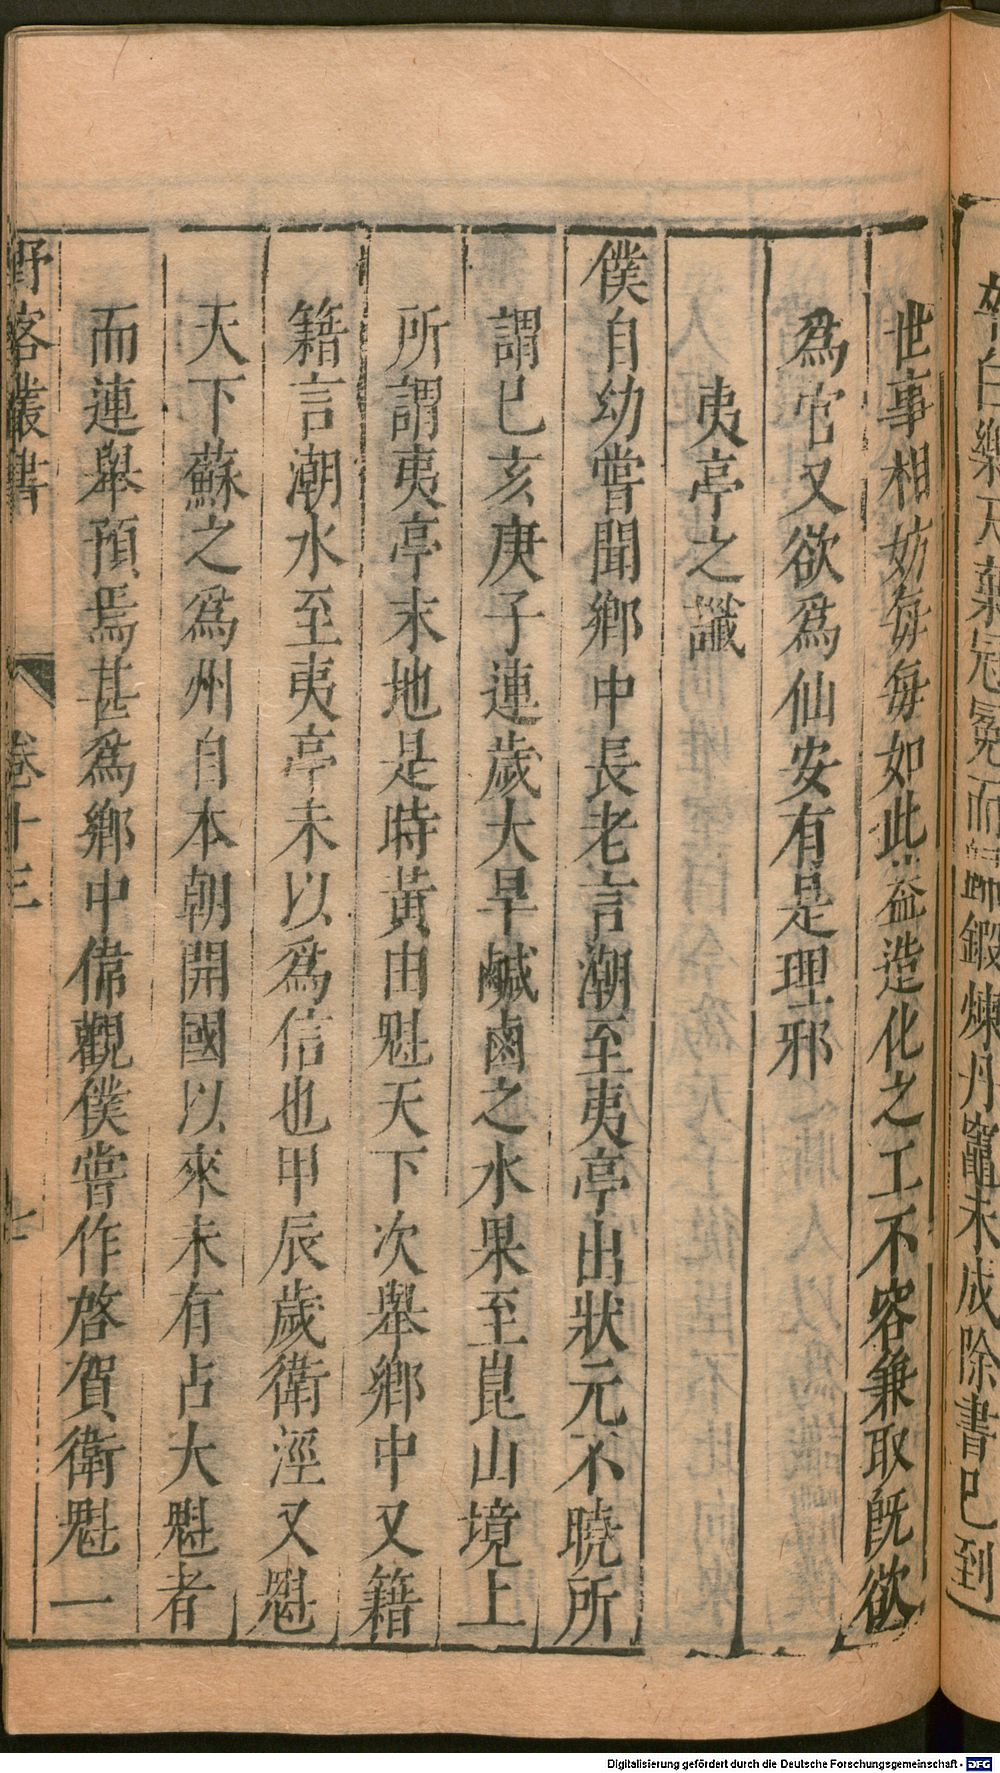 白樂天棄冠冕而歸鍛煉丹竈未成除書已到
世事相妨每每如此葢造化之工不容兼取旣欲
爲官又欲爲仙安有是理邪
夷亭之讖
僕自幼嘗聞鄉中長老言潮至夷亭出狀元不曉所
謂已亥庚子連歲大旱鹹鹵之水果至崑山境上
所謂夷亭末地是時黃由魁天下次舉鄉中又籍
籍言潮水至夷亭未以爲信也甲辰歲衛涇又魁
天下蘇之爲州自本朝開國以來未有占大魁者
而連舉預焉甚爲鄉中偉觀僕嘗作啓賀衛魁一
野客叢書 卷十三 七
Digitalisierung gefördert durch die Deutsche Forschungsgemeinschaft - DFG